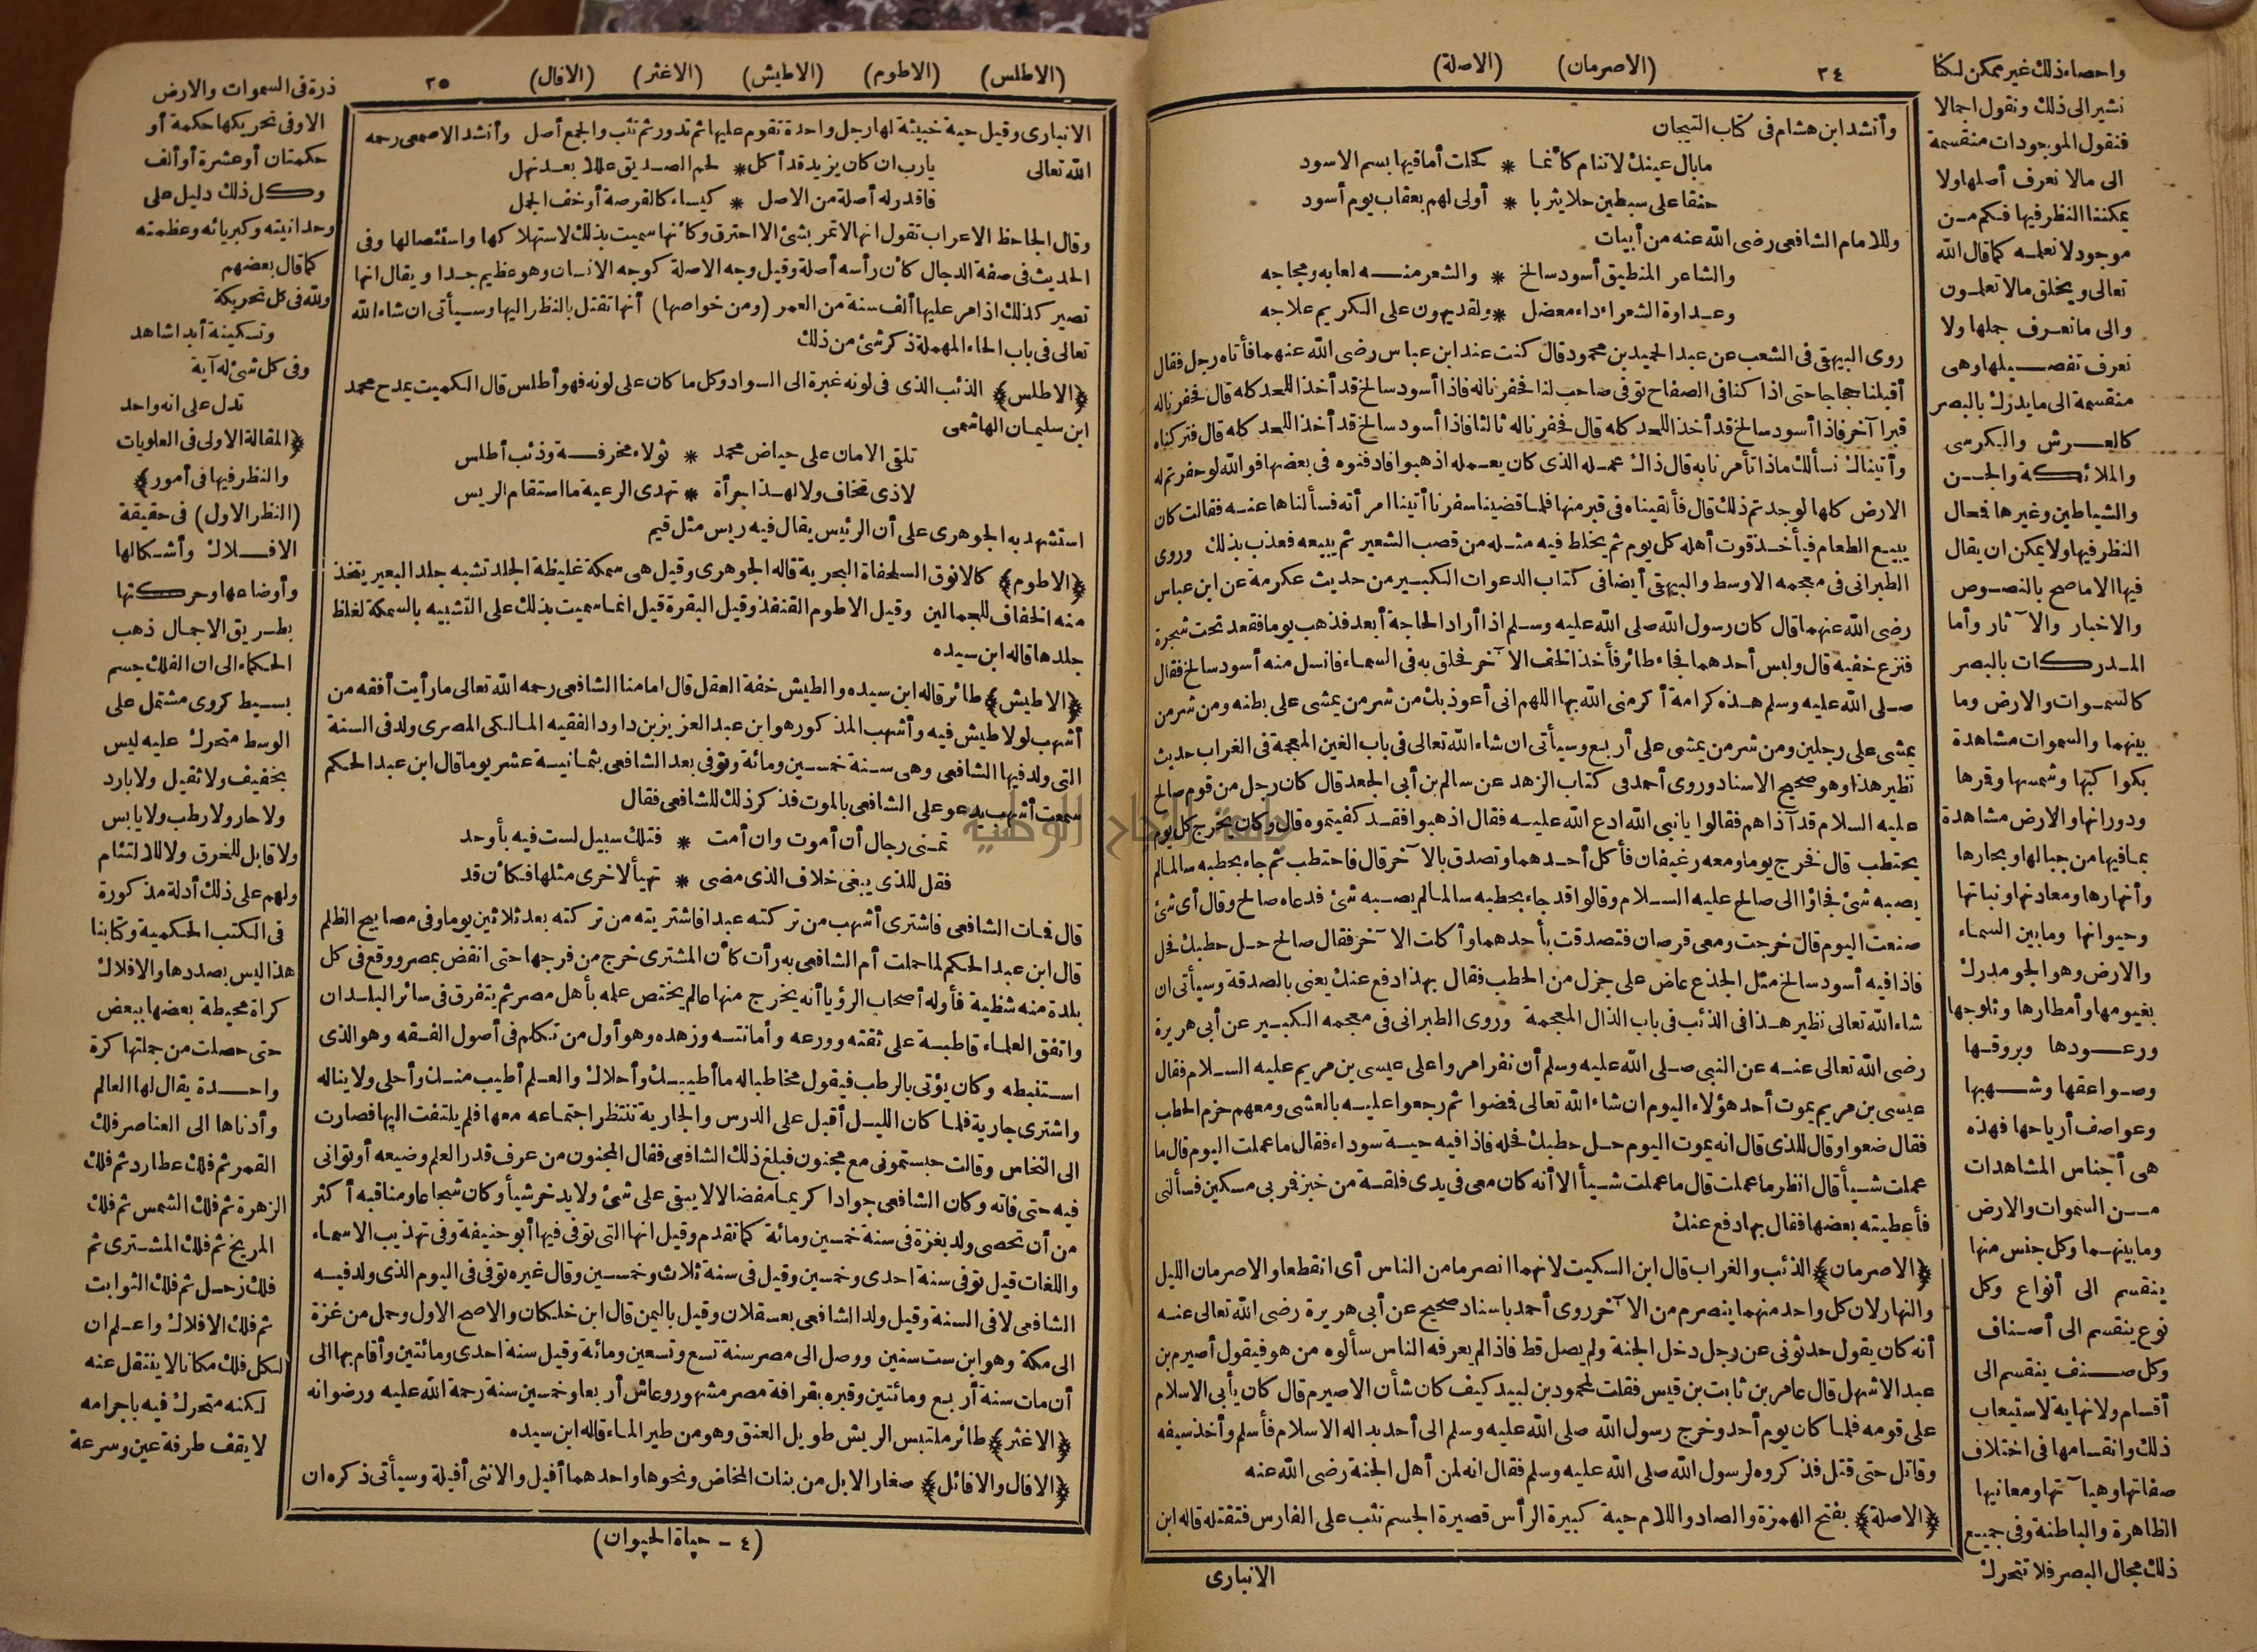 ٣٤ (الاصرمان) (الاصلة)
وأنشد ابن هشام فى كتاب التيجان
مابال عينك لا تنام كأنما * كحلت أماقيها بسم الاسود
حنقا على سبطين حلا يثربا * أولى لهم بعقاب يوم أسود
وللامام الشافعى رضى الله عنه من أبيات
والشاعر المنطيق أسود سالخ * والشعر منه لعابه ومجاجه
وعداوة الشعراء داء معضل * ولقد يهون على الكريم علاجه
روى البيهقى فى الشعب عن عبد الحميد بن محمود قال كنت عند ابن عباس رضى الله عنهما فأتاه رجل فقال
أقبلنا حجاجا حتى اذا كنا فى الصفاح توفى صاحب لنا فحفرنا له فاذا أسود سالخ قد أخذ اللحد كله قال فحفرنا له
قبرا آخر فاذا أسود سالخ قد أخذ اللحد كله قال فحفرنا له ثالثا فاذا أسود سالخ قد أخذ اللحد كله قال فتركناه
وأتيناك نسألك ماذا تأمرنا به قال ذاك عمله الذى كان يعمله اذهبوا فادفنوه فى بعضها فوالله لو حفرتم له
الارض كلها لوجدتم ذلك قال فألقيناه فى قبر منها فلما قضينا سفرنا أتينا امرأته فسألناها عنه فقالت كان
يبيع الطعام فيأخذ قوت أهله كل يوم ثم يخلط فيه مثله من قصب الشعير ثم يبيعه فعذب بذلك وروى
الطبرانى فى معجمه الاوسط والبيهقى أيضا فى كتاب الدعوات الكبير من حديث عكرمة عن ابن عباس
رضى الله عنهما قال كان رسول الله صلى الله عليه وسلم اذا أراد الحاجة أبعد فذهب يوما فقعد تحت شجرة
فنزع خفيه قال ولبس أحدهما فجاء طائر فأخذ الخف الآخر فحلق به فى السماء فانسل منه أسود سالخ فقال
صلى الله عليه وسلم هذه كرامة أكرمنى الله بها اللهم انى أعوذ بك من شر من يمشى على بطنه ومن شر من
يمشى على رجلين ومن شر من يمشى على أربع وسيأتى ان شاء الله تعالى فى باب الغين المعجمة فى الغراب حديث
نظير هذا وهو صحيح الاسناد وروى أحمد فى كتاب الزهد عن سالم بن أبى الجعد قال كان رجل من قوم صالح
عليه السلام قد آذاهم فقالوا يانبى الله ادع الله عليه فقال اذهبوا فقد كفيتموه قال وكان يخرج كل يوم
يحتطب قال فخرج يوما ومعه رغيفان فأكل أحدهما وتصدق بالآخر قال فاحتطب ثم جاء بحطبه سالما لم
يصبه شئ فجاؤا الى صالح عليه السلام وقالوا قد جاء بحطبه سالما لم يصبه شئ فدعاه صالح وقال أى شئ
صنعت اليوم قال خرجت ومعى قرصان فتصدقت بأحدهما وأكلت الآخر فقال صالح حل حطبك فحل
فاذا فيه أسود سالخ مثل الجذع عاض على جزل من الحطب فقال بهذا دفع عنك يعنى بالصدقة وسيأتى ان
شاء الله تعالى نظير هذا فى الذئب فى باب الذال المعجمة وروى الطبرانى فى معجمه الكبير عن أبى هريرة
رضى الله تعالى عنه عن النبى صلى الله عليه وسلم أن نفرا مروا على عيسى بن مريم عليه السلام فقال
عيسى بن مريم يموت أحد هؤلاء اليوم ان شاء الله تعالى فمضوا ثم رجعوا عليه بالعشى ومعهم حزم الحطب
فقال ضعوا وقال للذى قال انه يموت اليوم حل حطبك فحله فاذا فيه حية سوداء فقال ما عملت اليوم قال ما
عملت شيأ قال انظر ما عملت قال ما عملت شيأ الا أنه كان معى فى يدى فلقة من خبز فمر بى مسكين فسألنى
فأعطيته بعضها فقال بها دفع عنك
﴿الاصرمان﴾ الذئب والغراب قال ابن السكيت لانهما انصرما من الناس أى انقطعا والاصرمان الليل
والنهار لان كل واحد منهما ينصرم من الآخر روى أحمد باسناد صحيح عن أبى هريرة رضى الله تعالى عنه
أنه كان يقول حدثونى عن رجل دخل الجنة ولم يصل قط فاذا لم يعرفه الناس سألوه من هو فيقول أصيرم بن
عبد الاشهل قال عامر بن ثابت بن قيس فقلت لمحمود بن لبيد كيف كان شأن الاصيرم قال كان يأبى الاسلام
على قومه فلما كان يوم أحد وخرج رسول الله صلى الله عليه وسلم الى أحد بدا له الاسلام فأسلم وأخذ سيفه
وقاتل حتى قتل فذكروه لرسول الله صلى الله عليه وسلم فقال انه لمن أهل الجنة رضى الله عنه
﴿الاصلة﴾ بفتح الهمزة والصاد واللام حية كبيرة الرأس قصيرة الجسم تثب على الفارس فتقتله قاله ابن
الانبارى
واحصاء ذلك غير ممكن لكنا
نشير الى ذلك ونقول اجمالا
فنقول الموجودات منقسمة
الى مالا نعرف أصلها ولا
يمكننا النظر فيها فكم من
موجود لا نعلمه كما قال الله
تعالى ويخلق مالا تعلمون
والى ما نعرف جملها ولا
نعرف تفصيلها وهى
منقسمة الى ما يدرك بالبصر
كالعرش والكرسى
والملائكة والجن
والشياطين وغيرها فحال
النظر فيها ولا يمكن ان يقال
فيها الا ما صح بالنصوص
والاخبار والآثار وأما
المدركات بالبصر
كالسموات والارض وما
بينهما والسموات مشاهدة
بكواكبها وشمسها وقمرها
ودورانها والارض مشاهدة
بما فيها من جبالها وبحارها
وأنهارها ومعادنها ونباتها
وحيوانها وما بين السماء
والارض وهو الجو مدرك
بغيومها وأمطارها وثلوجها
ورعودها وبروقها
وصواعقها وشهبها
وعواصف أرياحها فهذه
هى أجناس المشاهدات
من السموات والارض
وما بينهما وكل جنس منها
ينقسم الى أنواع وكل
نوع ينقسم الى أصناف
وكل صنف ينقسم الى
أقسام ولا نهاية لاستيعاب
ذلك وانقسامها فى اختلاف
صفاتها وهيآتها ومعانيها
الظاهرة والباطنة وفى جميع
ذلك مجال البصر فلا تتحرك
(الاطلس) (الاطوم) (الاطيش) (الاغثر) (الافال) ٣٥
الانبارى وقيل حية خبيثة لها رجل واحدة تقوم عليها ثم تدور ثم تثب والجمع أصل وأنشد الاصمعى رحمه
الله تعالى يارب ان كان يزيد قد أكل * لحم الصديق عللا بعد نهل
فاقدر له أصلة من الاصل * كبساء كالقرصة أو خف الجمل
وقال الجاحظ الاعراب تقول انها لا تمر بشئ الا احترق وكأنها سميت بذلك لاستهلاكها واستئصالها وفى
الحديث فى صفة الدجال كأن رأسه أصلة وقيل وجه الاصلة كوجه الانسان وهو عظيم جدا ويقال انها
تصير كذلك اذا مر عليها ألف سنة من العمر (ومن خواصها) أنها تقتل بالنظر اليها وسيأتى ان شاء الله
تعالى فى باب الحاء المهملة ذكر شئ من ذلك
﴿الاطلس﴾ الذئب الذى فى لونه غبرة الى السواد وكل ما كان على لونه فهو أطلس قال الكميت يمدح محمد
ابن سليمان الهاشمى
تلقى الامان على حياض محمد * ثولاء مخرفة وذئب أطلس
لاذى تخاف ولا لهذا جرأة * تهدى الرعية ما استقام الريس
استشهد به الجوهرى على أن الرئيس يقال فيه ريس مثل قيم
﴿الاطوم﴾ كالانوق السلحفاة البحرية قاله الجوهرى وقيل هى سمكة غليظة الجلد تشبه جلد البعير يتخذ
منه الخفاف للجمالين وقيل الاطوم القنفذ وقيل البقرة قيل انما سميت بذلك على التشبيه بالسمكة لغلظ
جلدها قاله ابن سيده
﴿الاطيش﴾ طائر قاله ابن سيده والطيش خفة العقل قال امامنا الشافعى رحمه الله تعالى ما رأيت أفقه من
أشهب لولا طيش فيه وأشهب المذكور هو ابن عبد العزيز بن داود الفقيه المالكى المصرى ولد فى السنة
التى ولد فيها الشافعى وهى سنة خمسين ومائة وتوفى بعد الشافعى بثمانية عشر يوما قال ابن عبد الحكم
سمعت أشهب يدعو على الشافعى بالموت فذكر ذلك للشافعى فقال
تمنى رجال أن أموت وان أمت * فتلك سبيل لست فيه بأوحد
فقل للذى يبغى خلاف الذى مضى * تهيأ لاخرى مثلها فكأن قد
قال فمات الشافعى فاشترى أشهب من تركته عبدا فاشتريته من تركته بعد ثلاثين يوما وفى مصابيح الظلم
قال ابن عبد الحكم لما حملت أم الشافعى به رأت كأن المشترى خرج من فرجها حتى انقض بمصر ووقع فى كل
بلدة منه شظية فأوله أصحاب الرؤيا أنه يخرج منها عالم يختص علمه بأهل مصر ثم يتفرق فى سائر البلدان
واتفق العلماء قاطبة على ثقته وورعه وأمانته وزهده وهو أول من تكلم فى أصول الفقه وهو الذى
استنبطه وكان يؤتى بالرطب فيقول مخاطبا له ما أطيبك وأحلاك والعلم أطيب منك وأحلى ولا يناله
واشترى جارية فلما كان الليل أقبل على الدرس والجارية تنتظر اجتماعه معها فلم يلتفت اليها فصارت
الى النخاس وقالت حبستمونى مع مجنون فبلغ ذلك الشافعى فقال المجنون من عرف قدر العلم وضيعه أو توانى
فيه حتى فاته وكان الشافعى جوادا كريما مفضالا لا يبقى على شئ ولا يدخر شيأ وكان شجاعا ومناقبه أكثر
من أن تحصى ولد بغزة فى سنة خمسين ومائة كما تقدم وقيل انها التى توفى فيها أبو حنيفة وفى تهذيب الاسماء
واللغات قيل توفى سنة احدى وخمسين وقيل فى سنة ثلاث وخمسين وقال غيره توفى فى اليوم الذى ولد فيه
الشافعى لا فى السنة وقيل ولد الشافعى بعسقلان وقيل باليمن قال ابن خلكان والاصح الاول وحمل من غزة
الى مكة وهو ابن ست سنين ووصل الى مصر سنة تسع وتسعين ومائة وقيل سنة احدى ومائتين وأقام بها الى
أن مات سنة أربع ومائتين وقبره بقرافة مصر مشهور وعاش أربعا وخمسين سنة رحمة الله عليه ورضوانه
﴿الاغثر﴾ طائر ملتبس الريش طويل العنق وهو من طير الماء قاله ابن سيده
﴿الافال والافائل﴾ صغار الابل من بنات المخاض ونحوها واحدهما أفيل والانثى أفيلة وسيأتى ذكره ان
(٤ - حياة الحيوان)
ذرة فى السموات والارض
الا وفى تحريكها حكمة أو
حكمتان أو عشرة أو ألف
وكل ذلك دليل على
وحدانيته وكبريائه وعظمته
كما قال بعضهم
ولله فى كل تحريكة
وتسكينة أبدا شاهد
وفى كل شئ له آية
تدل على انه واحد
﴿المقالة الاولى فى العلويات
والنظر فيها فى أمور﴾
(النظر الاول) فى حقيقة
الافلاك وأشكالها
وأوضاعها وحركتها
بطريق الاجمال ذهب
الحكماء الى ان الفلك جسم
بسيط كروى مشتمل على
الوسط متحرك عليه ليس
بخفيف ولا ثقيل ولا بارد
ولا حار ولا رطب ولا يابس
ولا قابل للخرق ولا للالتئام
ولهم على ذلك أدلة مذكورة
فى الكتب الحكمية وكتابنا
هذا ليس بصددها والافلاك
كراة محيطة بعضها ببعض
حتى حصلت من جملتها كرة
واحدة يقال لها العالم
وأدناها الى العناصر فلك
القمر ثم فلك عطارد ثم فلك
الزهرة ثم فلك الشمس ثم فلك
المريخ ثم فلك المشترى ثم
فلك زحل ثم فلك الثوابت
ثم فلك الافلاك واعلم ان
لكل فلك مكانا لا ينتقل عنه
لكنه متحرك فيه باجرامه
لا يقف طرفة عين وسرعة
جامعة النجاح الوطنية